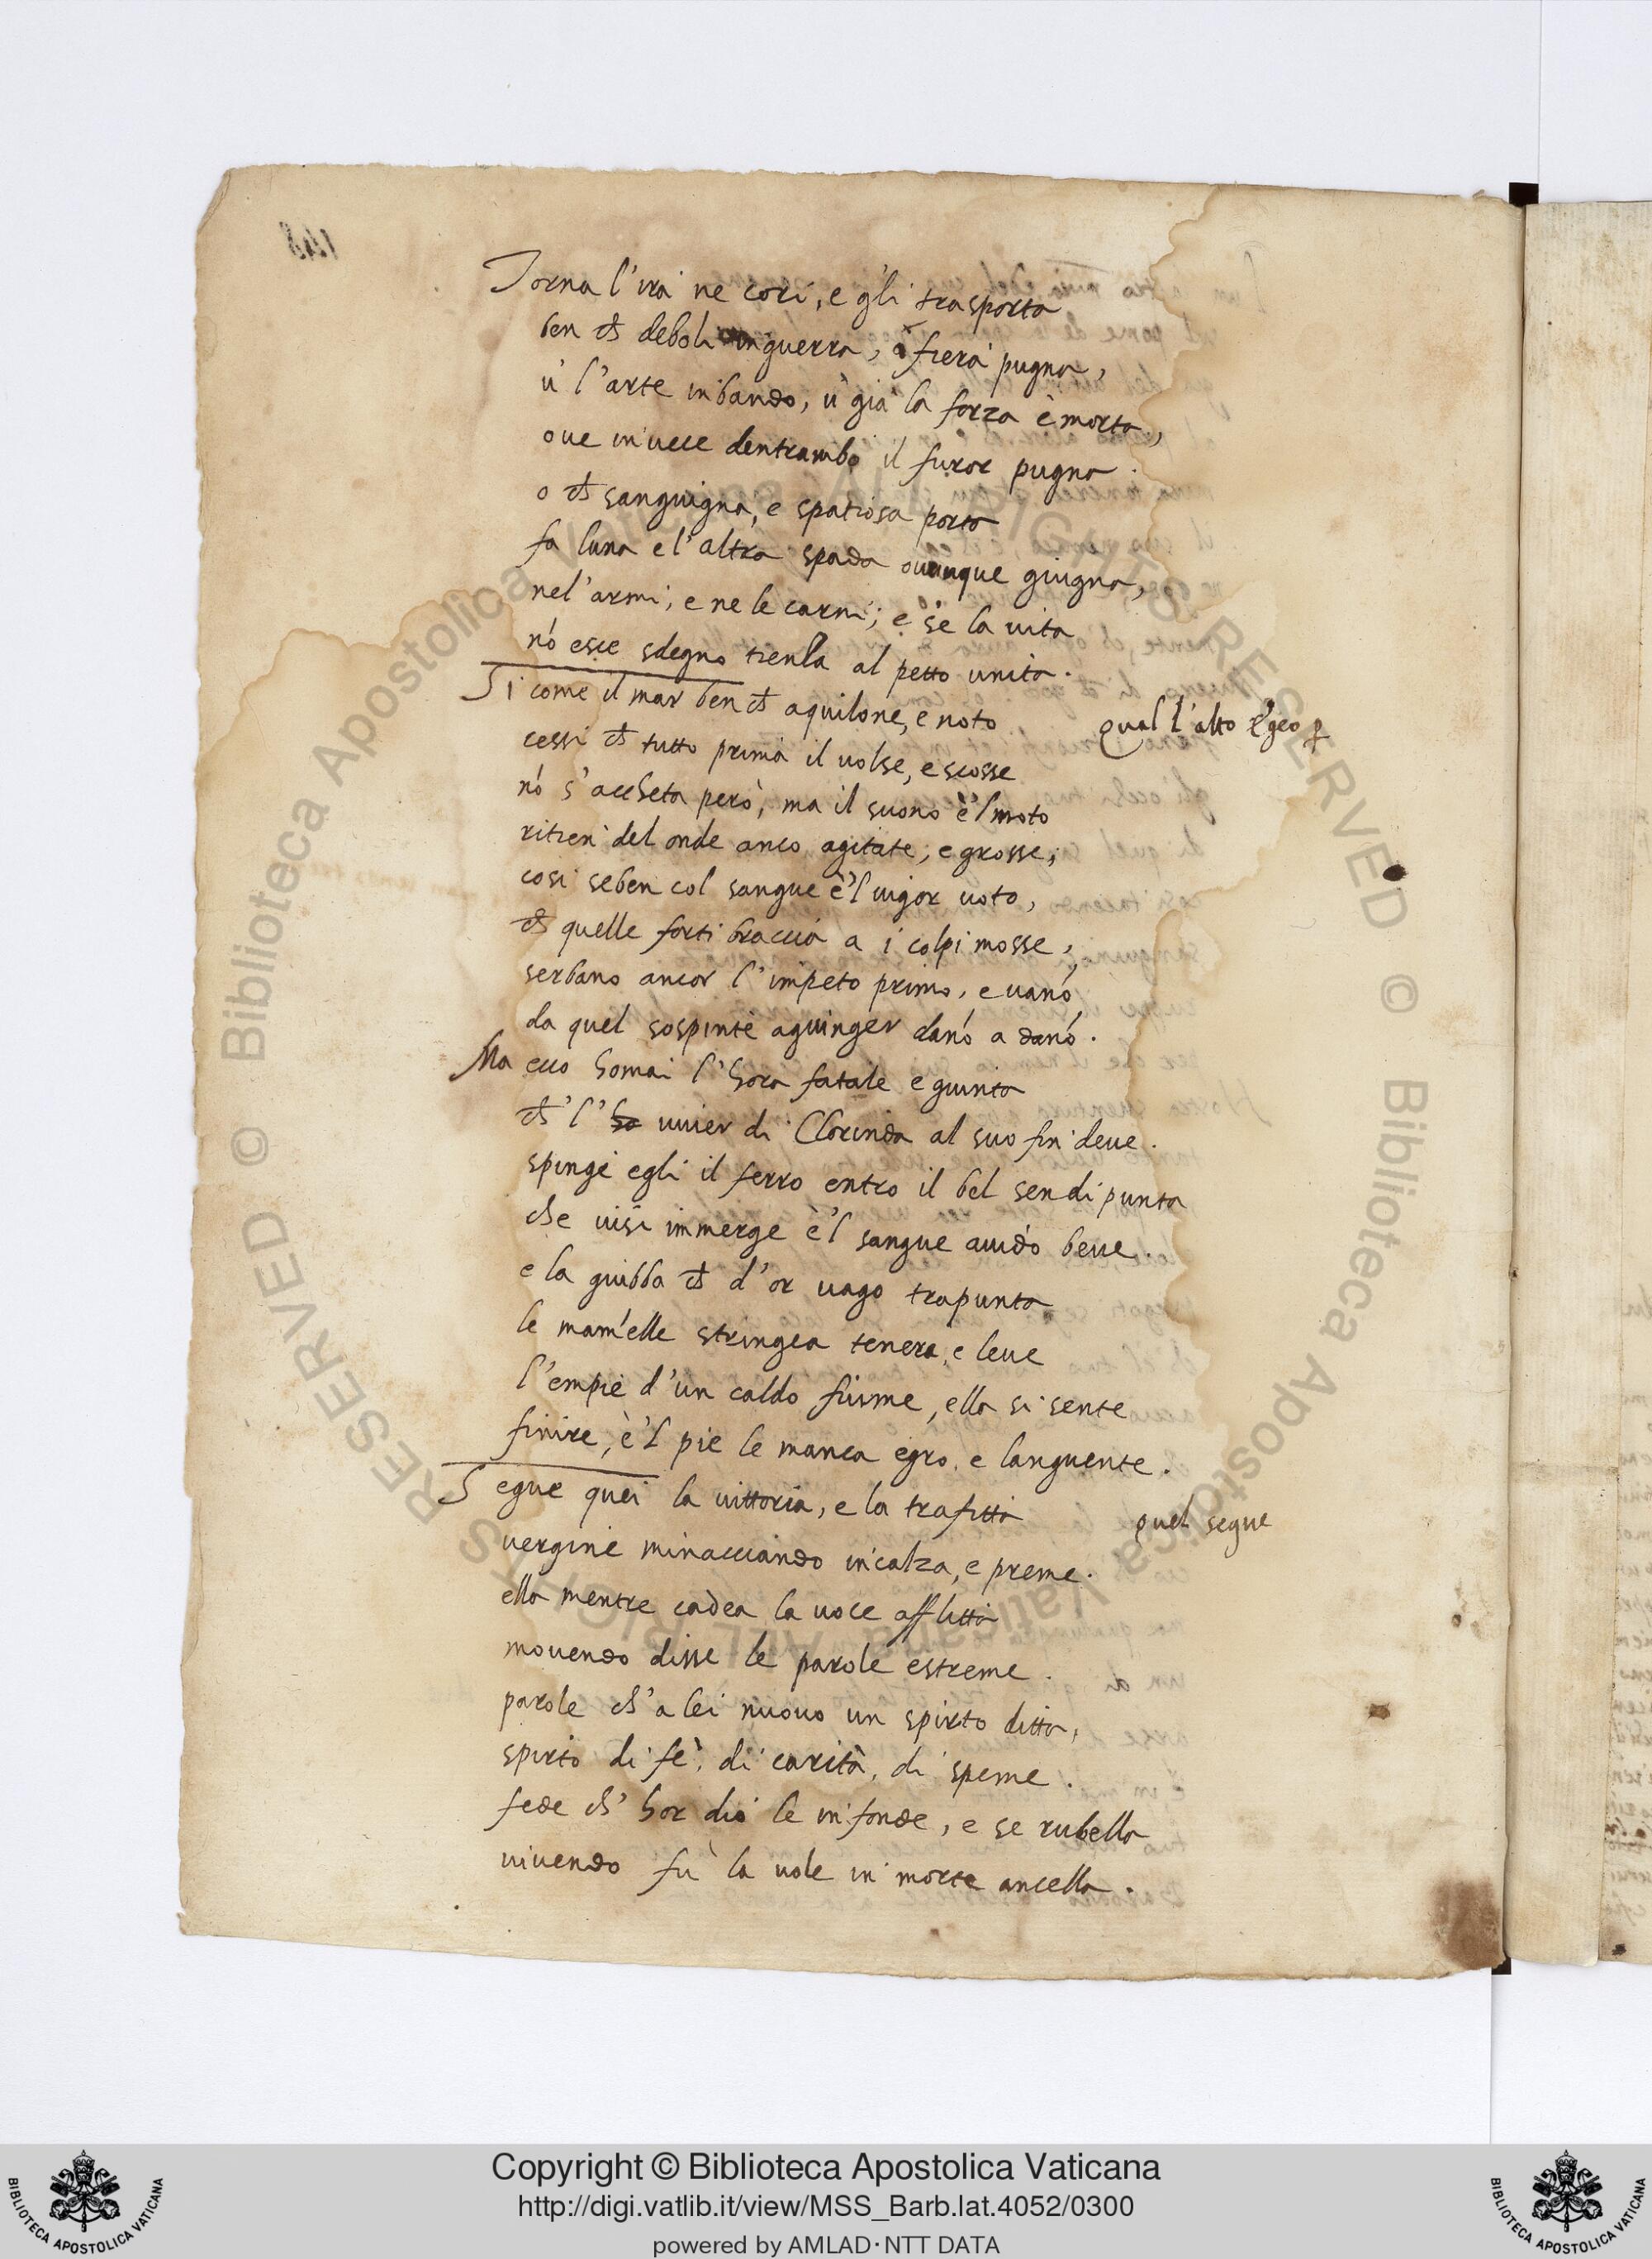 Torna l'ira ne cori, e gli trasporta
ben ch deboli in guerra, à fiera pugna,
ù l'arte in bando, ù già la forza è morta,
oue in uece dentrambo il furor pugna.
o ch sanguigna, e spatiosa porta
fa luna e l'altra spada ouunque giugna,
nel'armi, e ne le carni; e se la uita
nō esce sdegno tienla al petto unita.
Si come il mar ben ch aquilone, e noto
Qual l'alto Egeo
cessi ch tutto prima il uolse, e scosse
nō s'accheta però, ma il suono è'l moto
ritien del onde anco agitate, e grosse,
cosi seben col sangue è'l uigor uoto,
ch quelle forti braccia a i colpi mosse,
serbano ancor l'impeto primo, e uanō
da quel sospinte a giunger danō a danō.
Ma ecco homai l'hora fatale e giunta
ch'l' ho uiuer di Clorinda al suo fin deue.
spinge egli il ferro entro il bel sen di punta
che uisi immerge è'l sangue auido beue.
e la giubba ch d'or uago trapunta
le mam̄elle stringea tenera, e leue
l'empie d'un caldo fiume, ella si sente
finire, è'l pie le manca egro, e languente.
Segue quei la uittoria, e la trafitta
quel segue
uergine minacciando incalza, e preme.
ella mentre cadea la uoce afflitta
mouendo disse le parole estreme.
parole ch'a lei nuouo un spirto ditta,
spirto di fè, di carità, di speme.
fede ch' hor dio le infonde, e se rubella
uiuendo fù la uole in morte ancella.
148
RESERVED © Biblioteca Apostolica Vaticana ALL RIGHTS RESERVED © Biblioteca Apostolica Vaticana ALL RIGHTS
Copyright © Biblioteca Apostolica Vaticana
http://digi.vatlib.it/view/MSS_Barb.lat.4052/0300
powered by AMLAD·NTT DATA
BIBLIOTECA APOSTOLICA VATICANA
BIBLIOTECA APOSTOLICA VATICANA